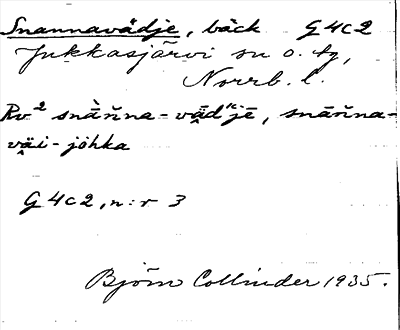 Snannavädje, bäck G4c2
Jukkasjärvi sn o. tg,
Norrb. l.
Rv² snā̀ňna-vǟdʹʹjē, snāňna-
väi-jåhka
G4c2, n:r 3
Björn Collinder 1935.